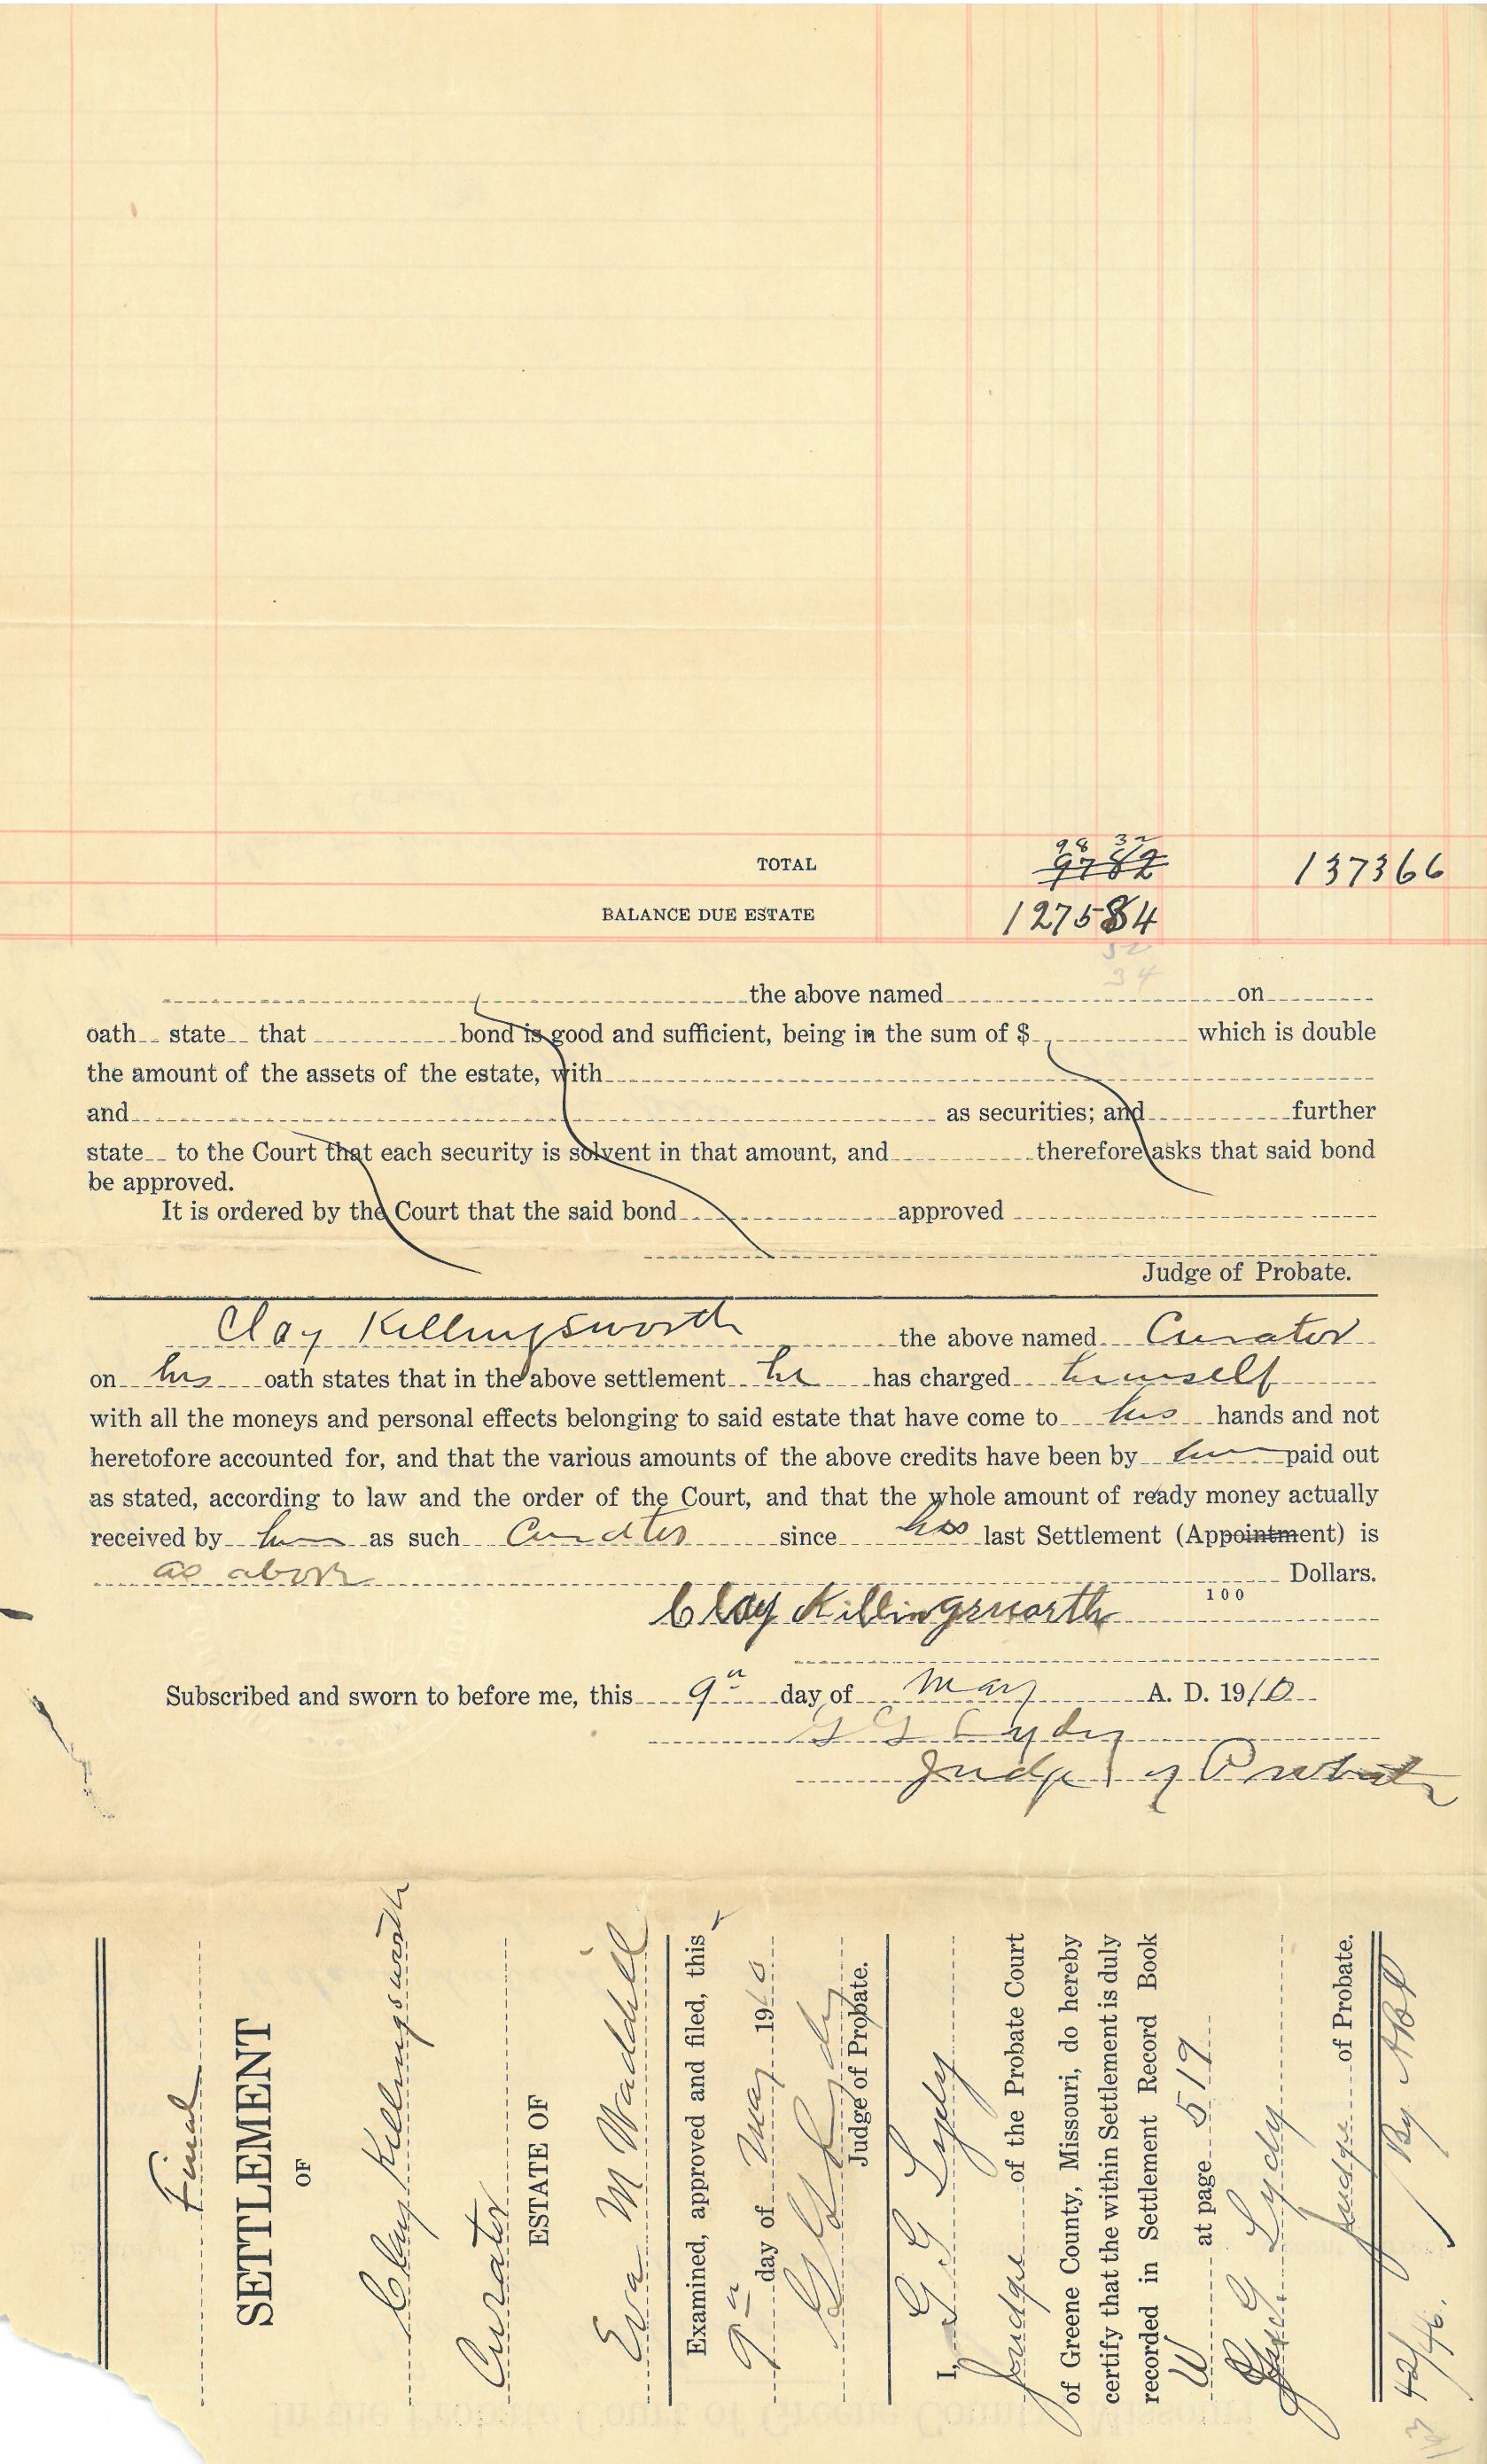 98 32
TOTAL 9782 137366
BALANCE DUE ESTATE 127584
52
34
the above named on
oath state that bond is good and sufficient, being in the sum of $ which is double
the amount of the assets of the estate, with
and as securities; and further
state to the Court that each security is solvent in that amount, and therefore asks that said bond
be approved.
It is ordered by the Court that the said bond approved
Judge of Probate.
Clay Killingsworth the above named Curator
on his oath states that in the above settlement he has charged himself
with all the moneys and personal effects belonging to said estate that have come to his hands and not
heretofore accounted for, and that the various amounts of the above credits have been by him paid out
as stated, according to law and the order of the Court, and that the whole amount of ready money actually
received by him as such Curator since his last Settlement (Appointment) is
as above Dollars.
100
Clay Killingsworth
Subscribed and sworn to before me, this 9" day of May A. D. 1910
G G Lydy
Judge of Probate
Final
SETTLEMENT
OF
Clay Killingsworth
Curator
ESTATE OF
Eva M Waddill
Examined, approved and filed, this
9" day of May 1910
G G Lydy
Judge of Probate.
I, G G Lydy
Judge of the Probate Court
of Greene County, Missouri, do hereby
certify that the within Settlement is duly
recorded in Settlement Record Book
W at page 519
G G Lydy
Judge of Probate.
By
42/46.